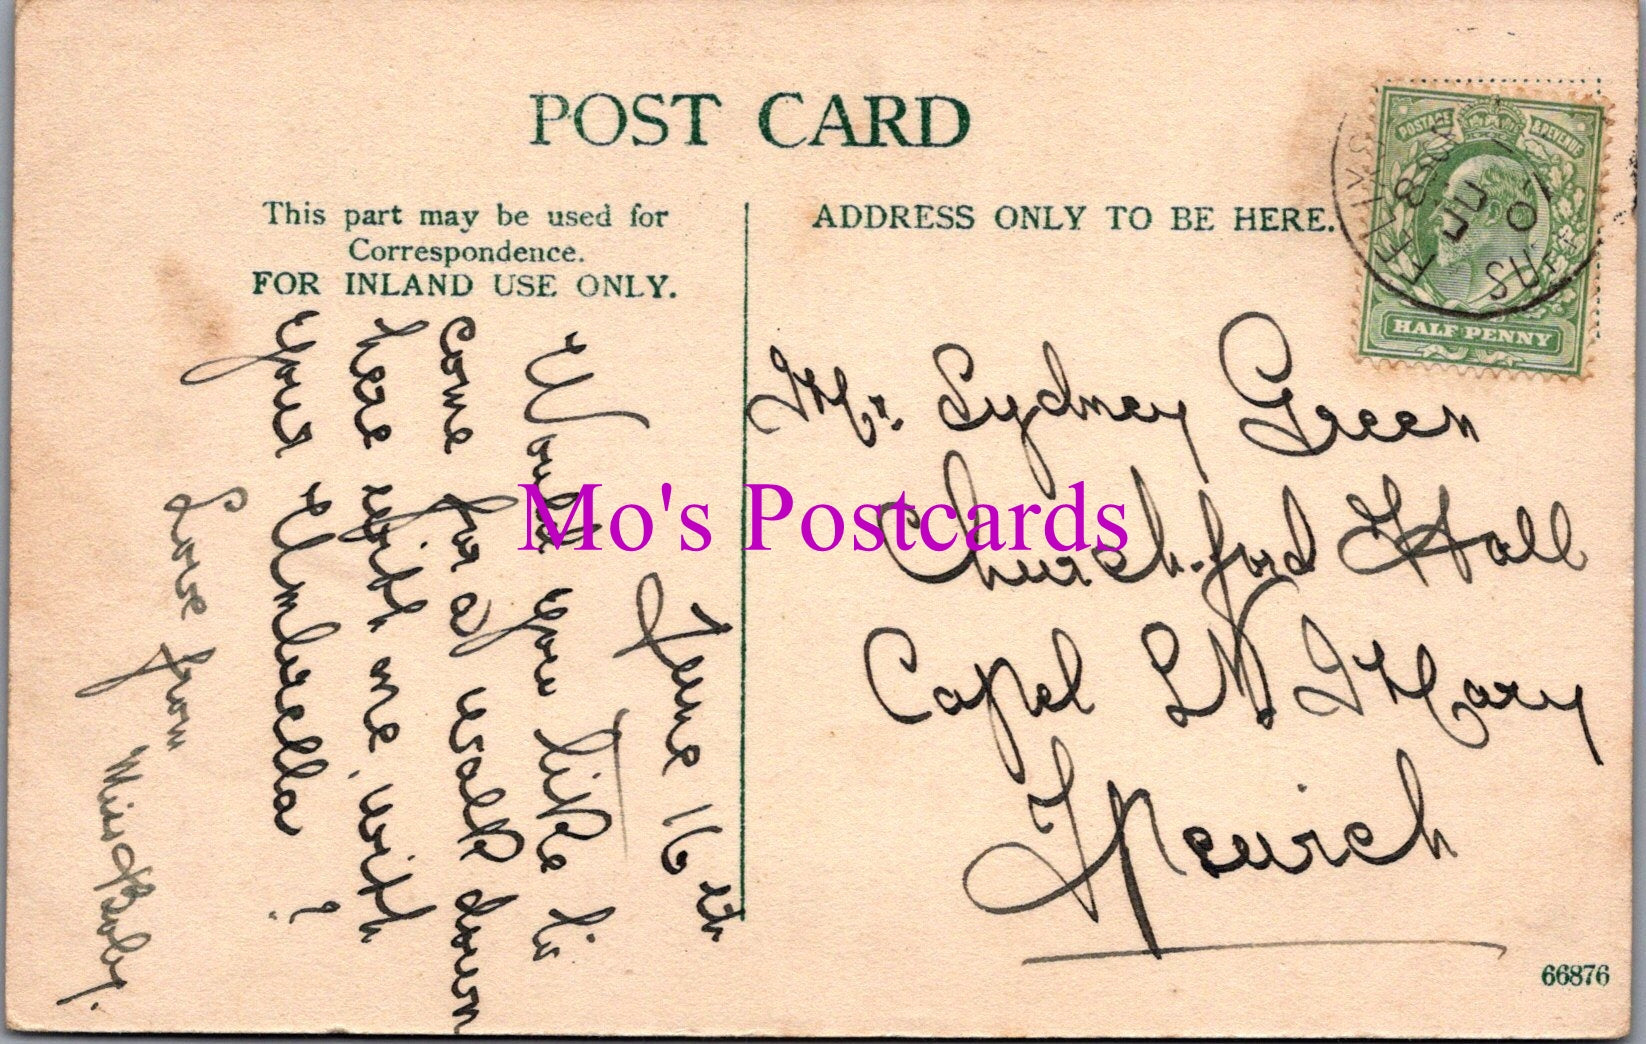 POST CARD
This part may be used for
Correspondence.
FOR INLAND USE ONLY.
ADDRESS ONLY TO BE HERE.
POSTAGE & REVENUE
HALF PENNY
FELIXS
JU
Mo's Postcards
June 16th
Would you like to
come for a walk down
here with me, with
your Umbrella?
Love from
Mr. Sydney Green
Churchford Hall
Capel St Mary
Ipswich
66876